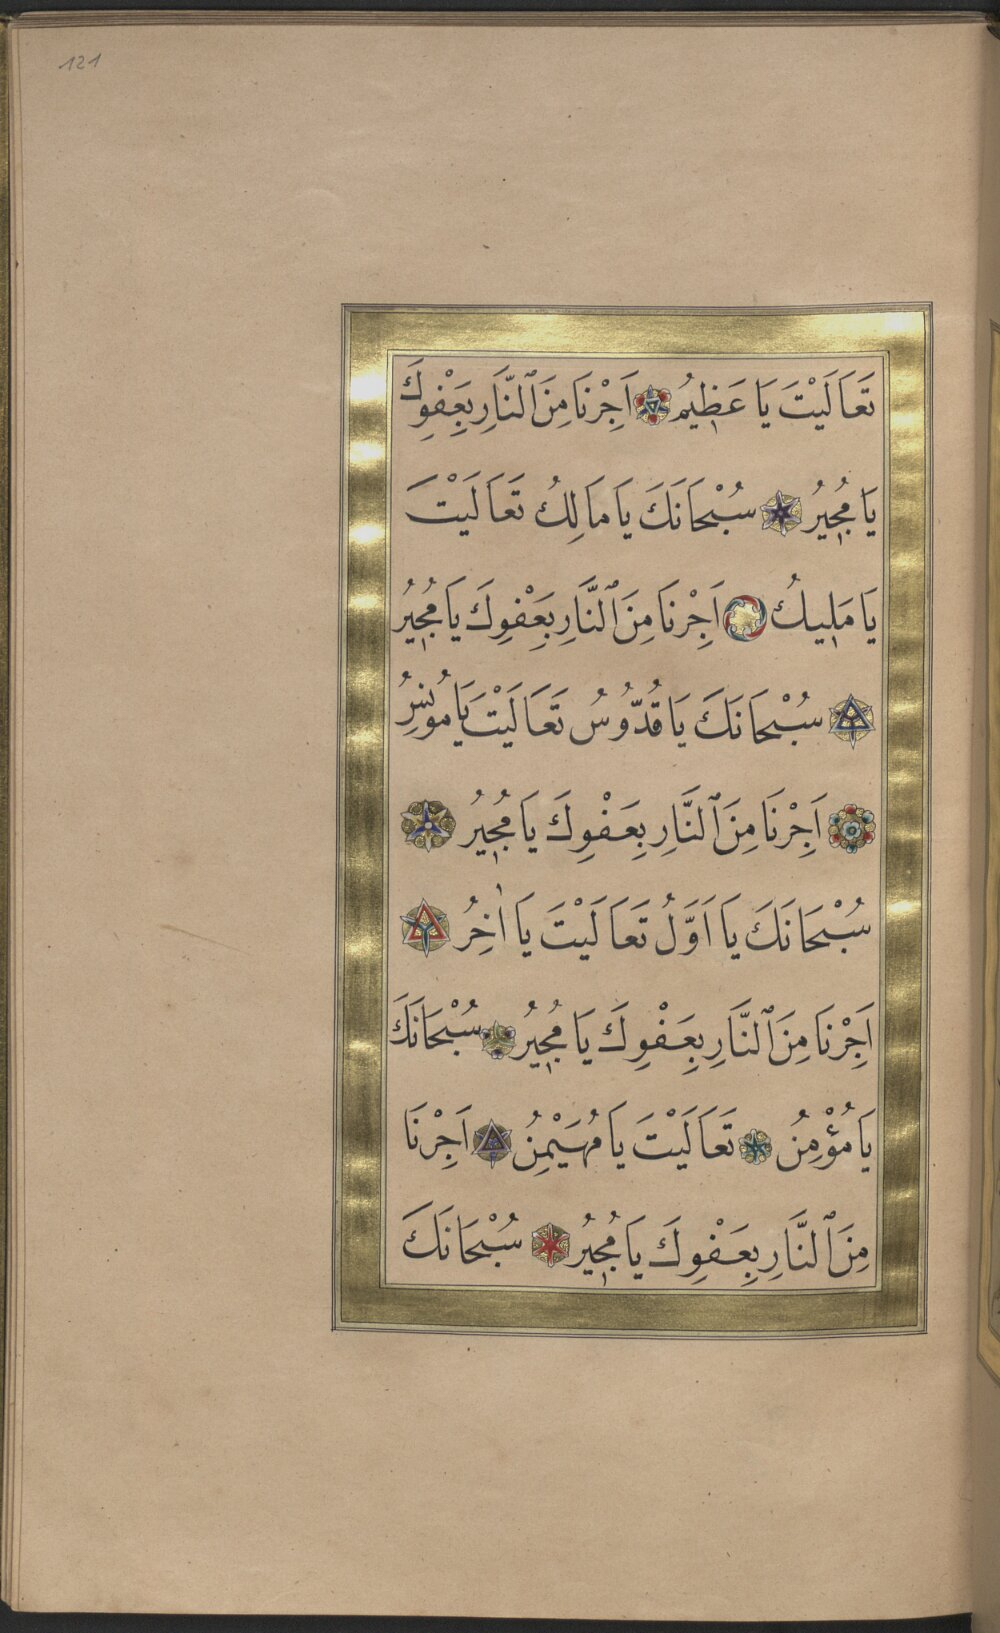 121
تَعَالَيْتَ يَا عَظٖيمُ اَجِرْنَا مِنَ ٱلنَّارِ بِعَفْوِكَ
يَا مُجٖيرُ سُبْحَانَكَ يَا مَالِكُ تَعَالَيْتَ
يَا مَلٖيكُ اَجِرْنَا مِنَ ٱلنَّارِ بِعَفْوِكَ يَا مُجٖيرُ
سُبْحَانَكَ يَا قُدُّوسُ تَعَالَيْتَ يَا مُونِسُ
اَجِرْنَا مِنَ ٱلنَّارِ بِعَفْوِكَ يَا مُجٖيرُ
سُبْحَانَكَ يَا اَوَّلُ تَعَالَيْتَ يَا اٰخِرُ
اَجِرْنَا مِنَ ٱلنَّارِ بِعَفْوِكَ يَا مُجٖيرُ سُبْحَانَكَ
يَا مُؤْمِنُ تَعَالَيْتَ يَا مُهَيْمِنُ اَجِرْنَا
مِنَ ٱلنَّارِ بِعَفْوِكَ يَا مُجٖيرُ سُبْحَانَكَ